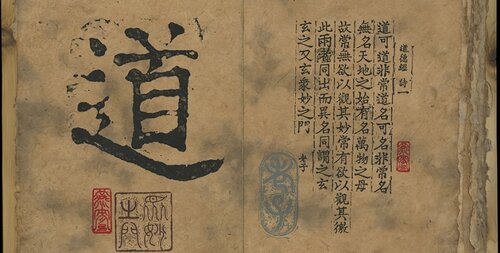 道德經 詩一
道可道非常道名可名非常名
無名天地之始有名萬物之母
故常無欲以觀其妙常有欲以觀其徼
此兩者同出而異名同謂之玄
玄之又玄衆妙之門
老子
道
衆妙之門